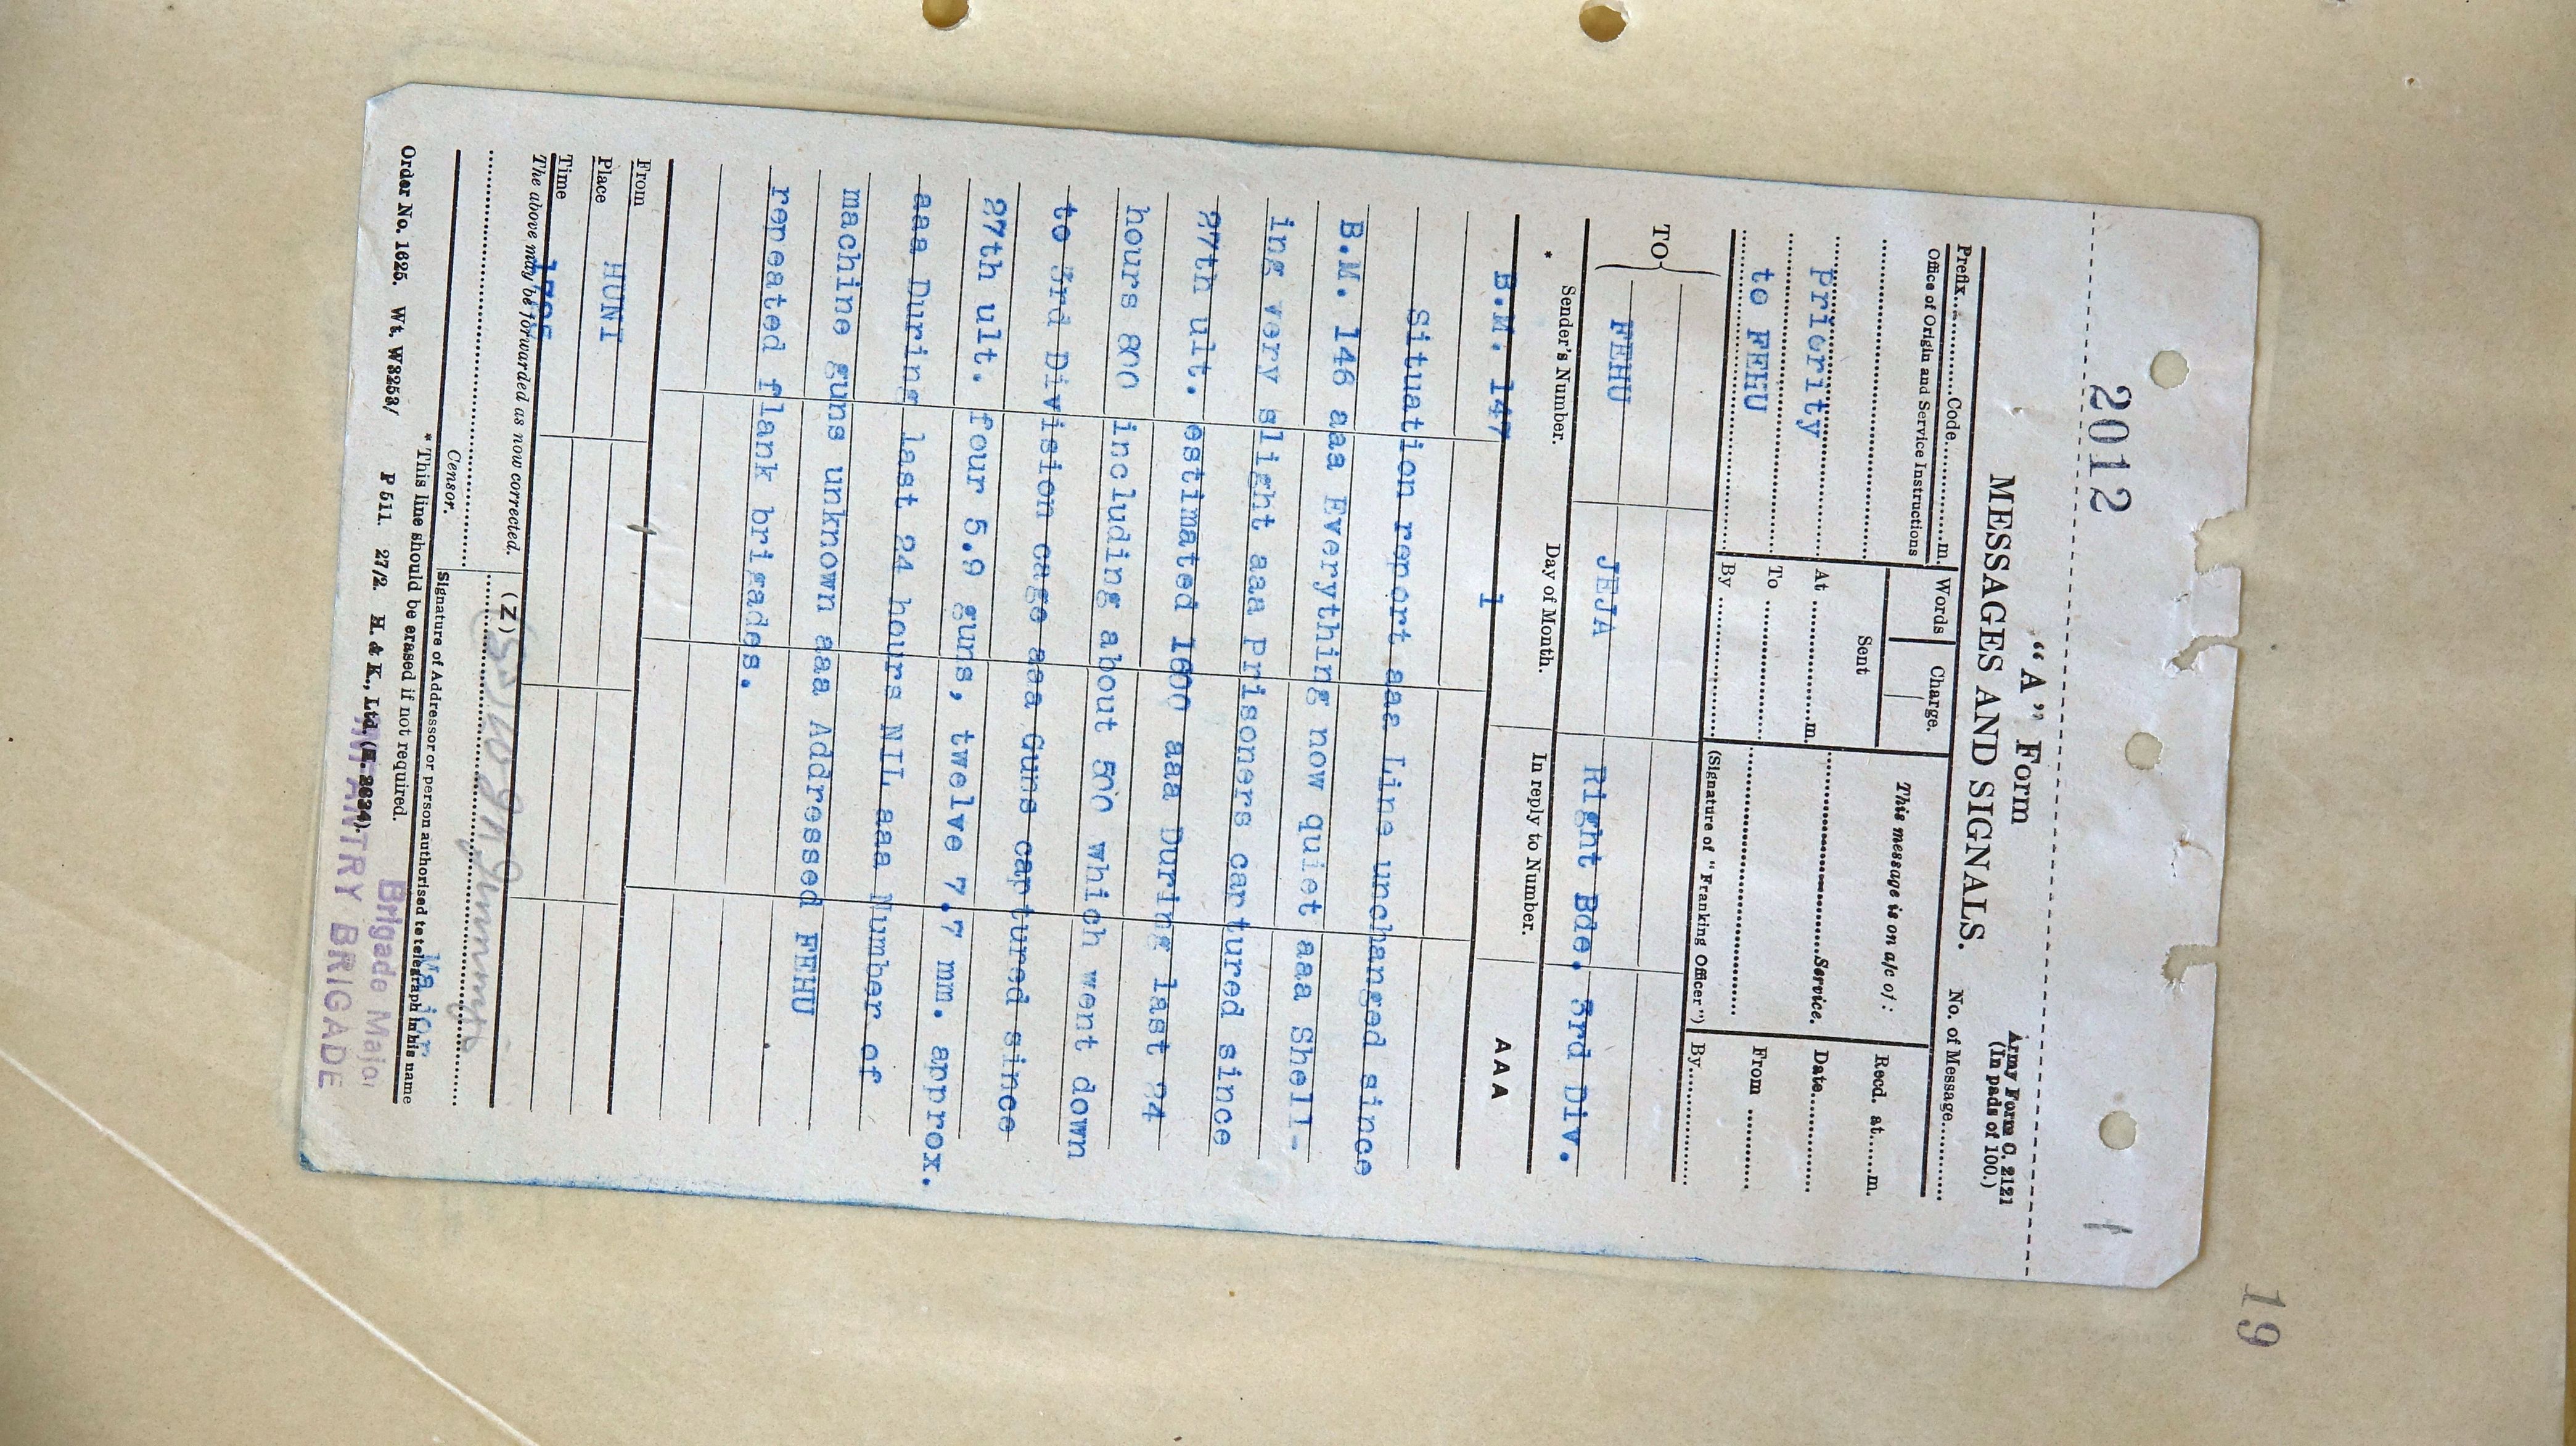 19
2012
1
"A" Form
Army Form C. 2121
(In pads of 100.)
MESSAGES AND SIGNALS.
No. of Message..........
Prefix............Code..................m.
Words
Charge.
This message is on a/c of :
Recd. at.......m.
Office of Origin and Service Instructions
Sent
Priority
At ..................m.
....................Service.
Date..............
to FEHU
To ..................
From ............
By ..................
(Signature of "Franking Officer")
By..............
TO
FEHU
JEJA
Right Bde. 3rd Div.
* Sender's Number.
Day of Month.
In reply to Number.
AAA
B.M. 147
1
Situation report aaa Line unchanged since
B.M. 146 aaa Everything now quiet aaa Shell-
ing very slight aaa Prisoners captured since
27th ult. estimated 1600 aaa During last 24
hours 800 including about 500 which went down
to 3rd Division cage aaa Guns captured since
27th ult. four 5.9 guns, twelve 7.7 mm. approx.
aaa During last 24 hours NIL aaa Number of
machine guns unknown aaa Addressed FEHU
repeated flank brigades.
From
Place
HUNI
Time
The above may be forwarded as now corrected.
(Z)
Censor.
Signature of Addressor or person authorised to telegraph in his name
Major
* This line should be erased if not required.
Brigade Major
INFANTRY BRIGADE
Order No. 1625. Wt. W3253/ P 511. 27/2. H. & K., Ltd. (E. 2634).